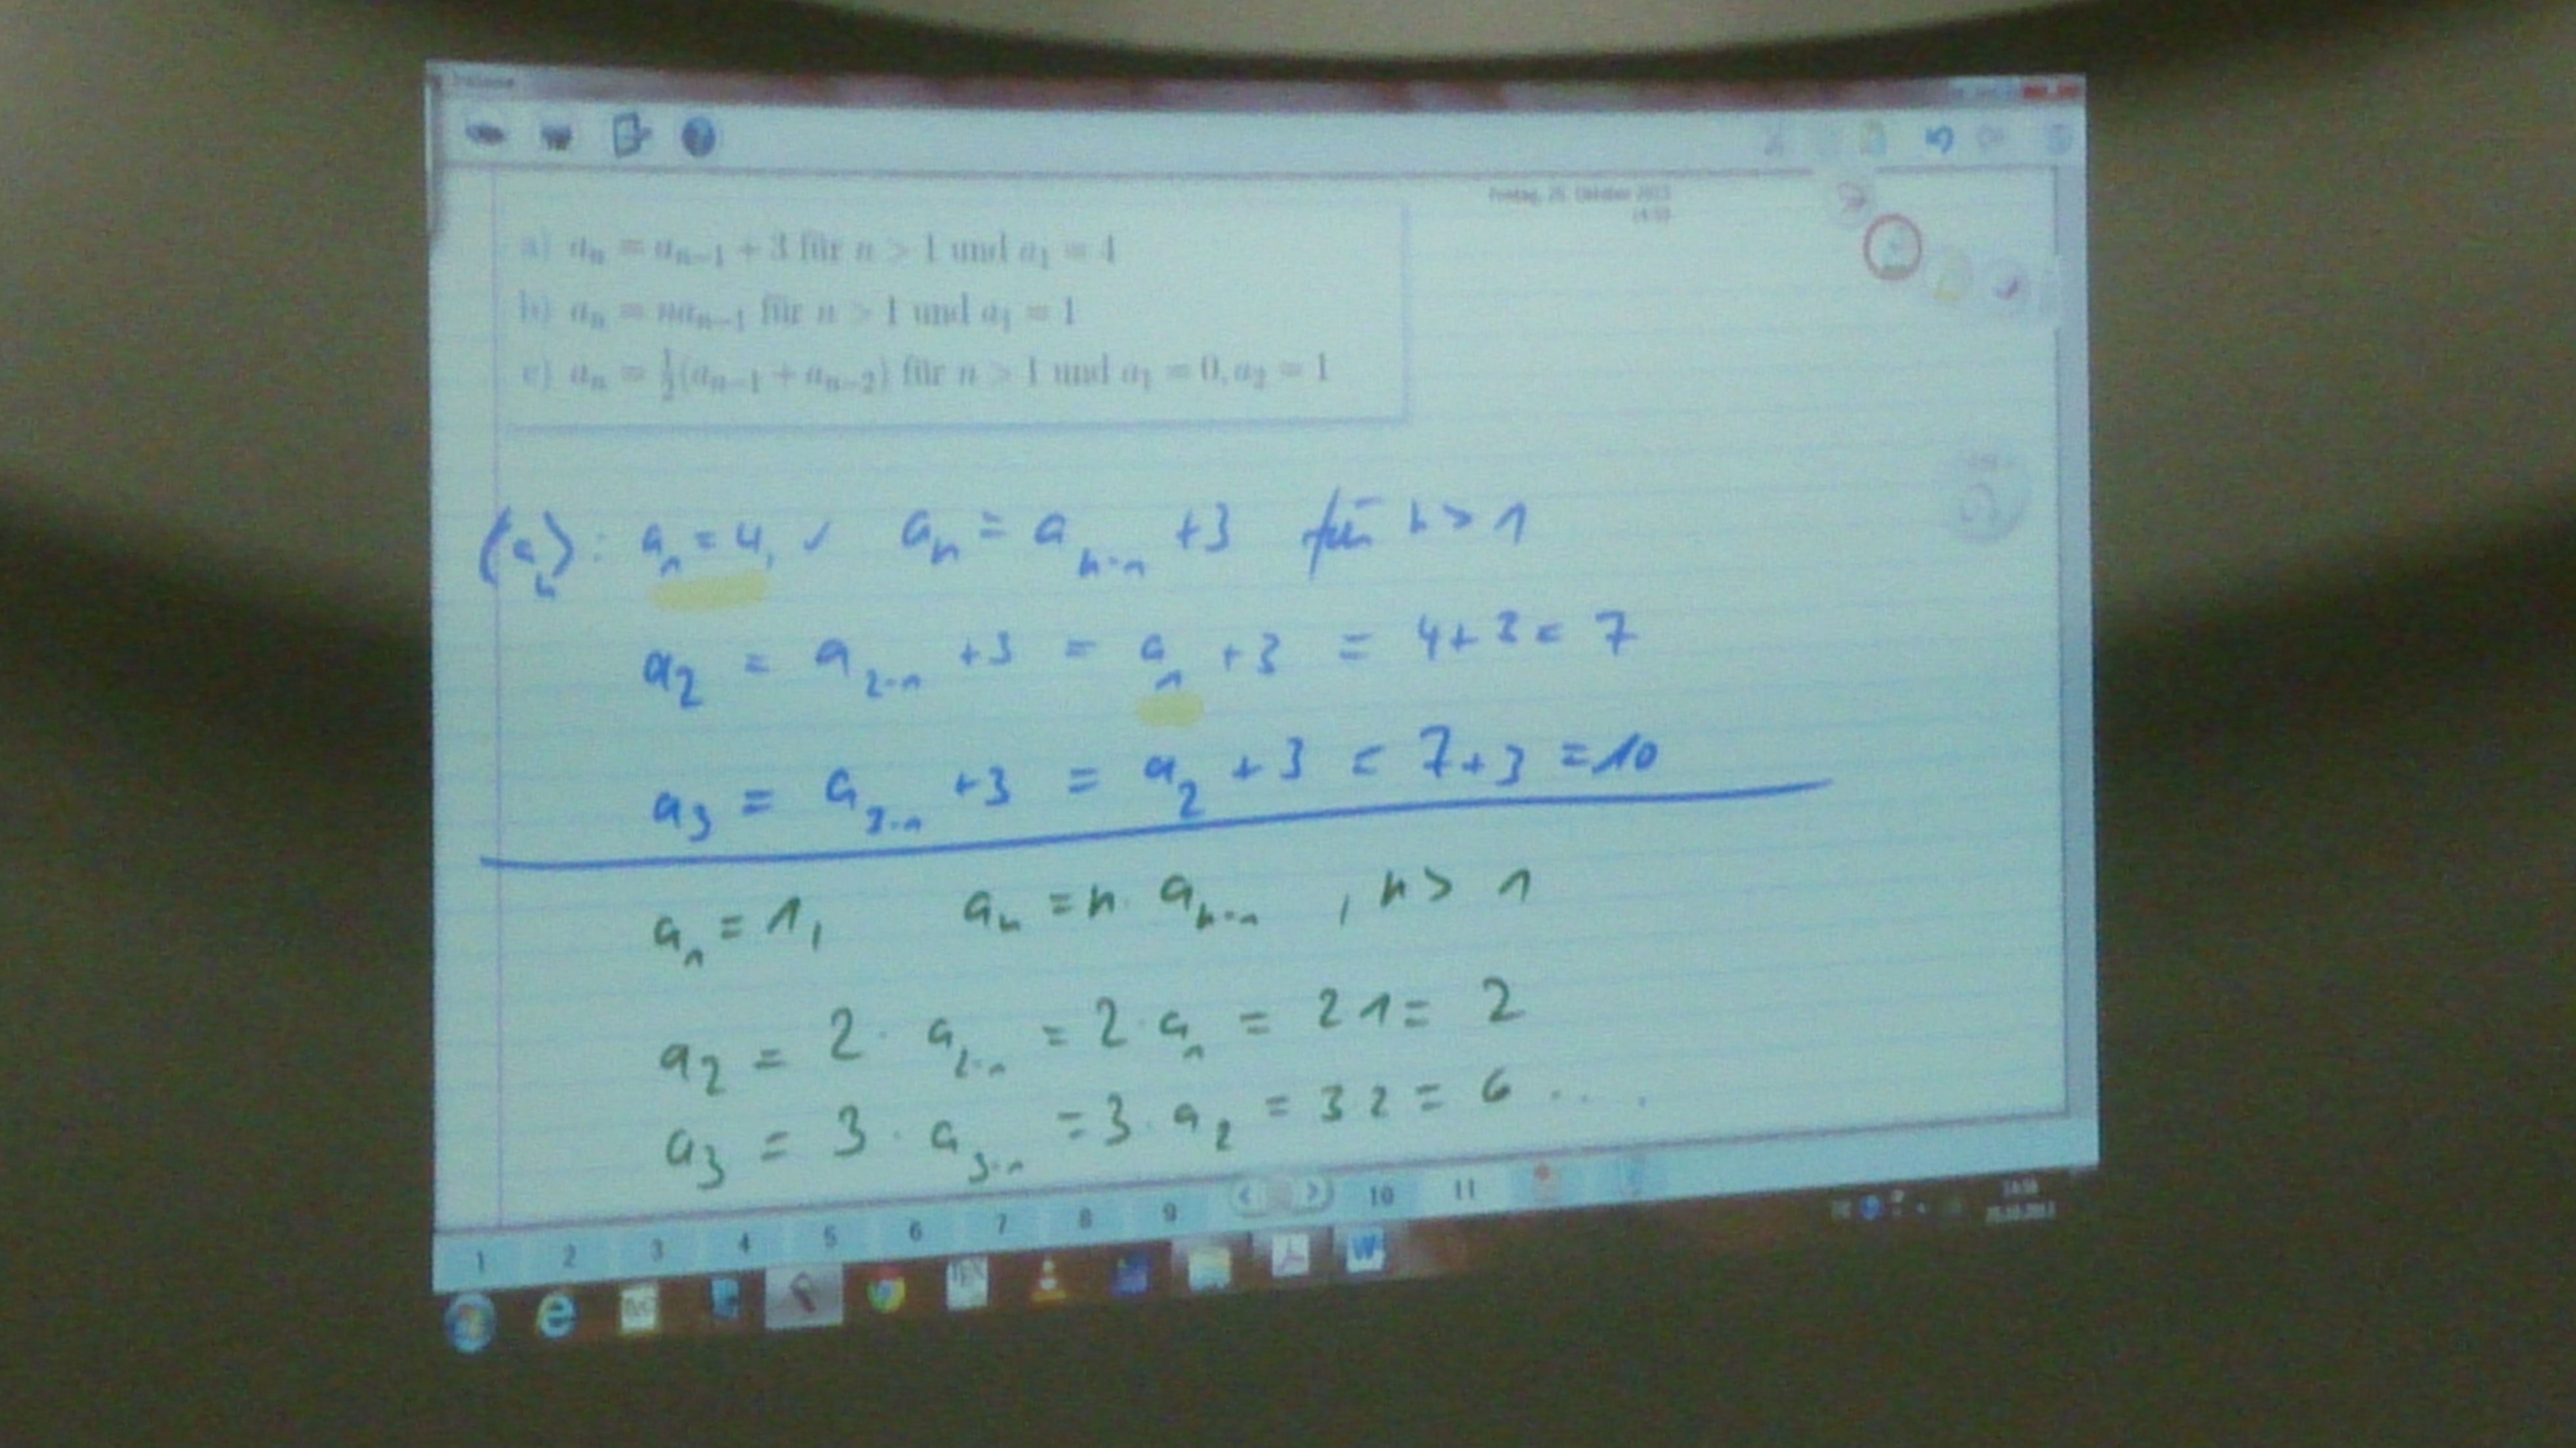 Freitag, 25. Oktober 2013
a) aₙ = aₙ₋₁ + 3 für n > 1 und a₁ = 4
b) aₙ = naₙ₋₁ für n > 1 und a₁ = 1
c) aₙ = ½(aₙ₋₁ + aₙ₋₂) für n > 1 und a₁ = 0, a₂ = 1
(aₙ): a₁ = 4, ✓ aₙ = aₙ₋₁ + 3 für n > 1
a₂ = a₂₋₁ + 3 = a₁ + 3 = 4 + 3 = 7
a₃ = a₃₋₁ + 3 = a₂ + 3 = 7 + 3 = 10
a₁ = 1, aₙ = n · aₙ₋₁ , n > 1
a₂ = 2 · a₂₋₁ = 2 · a₁ = 2 1 = 2
a₃ = 3 · a₃₋₁ = 3 · a₂ = 3 2 = 6 . . . .
1 2 3 4 5 6 7 8 9 10 11
W